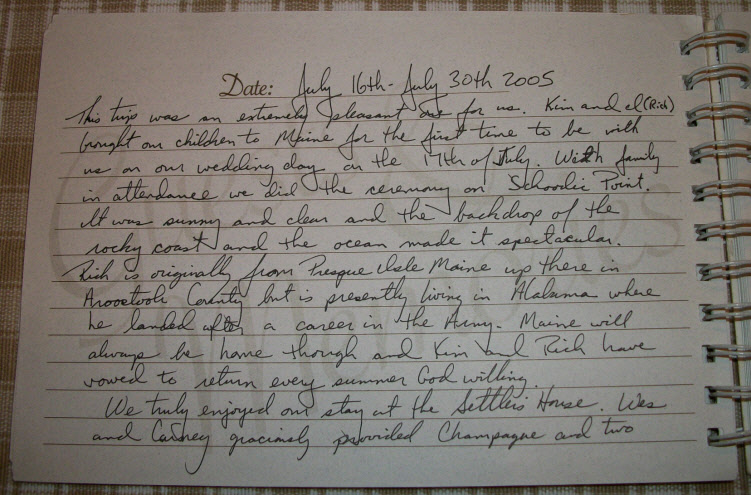 Date: July 16th - July 30th 2005
This trip was an extremely pleasant one for us. Kim and I (Rich)
brought our children to Maine for the first time to be with
us on our wedding day on the 17th of July. With family
in attendance we did the ceremony on Schoodic Point.
It was sunny and clear and the backdrop of the
rocky coast and the ocean made it spectacular.
Rich is originally from Presque Isle Maine up there in
Aroostook County but is presently living in Alabama where
he landed after a career in the Army. Maine will
always be home though and Kim and Rich have
vowed to return every summer God willing.
We truly enjoyed our stay at the Settler's House. Wes
and graciously provided Champagne and two
Memories